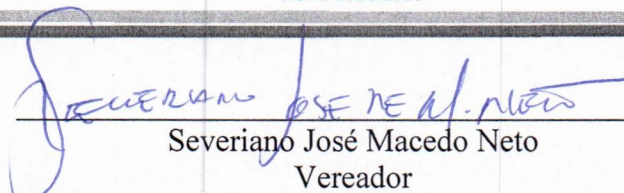 SEVERIANO JOSE DE M. NETO
Severiano José Macedo Neto
Vereador